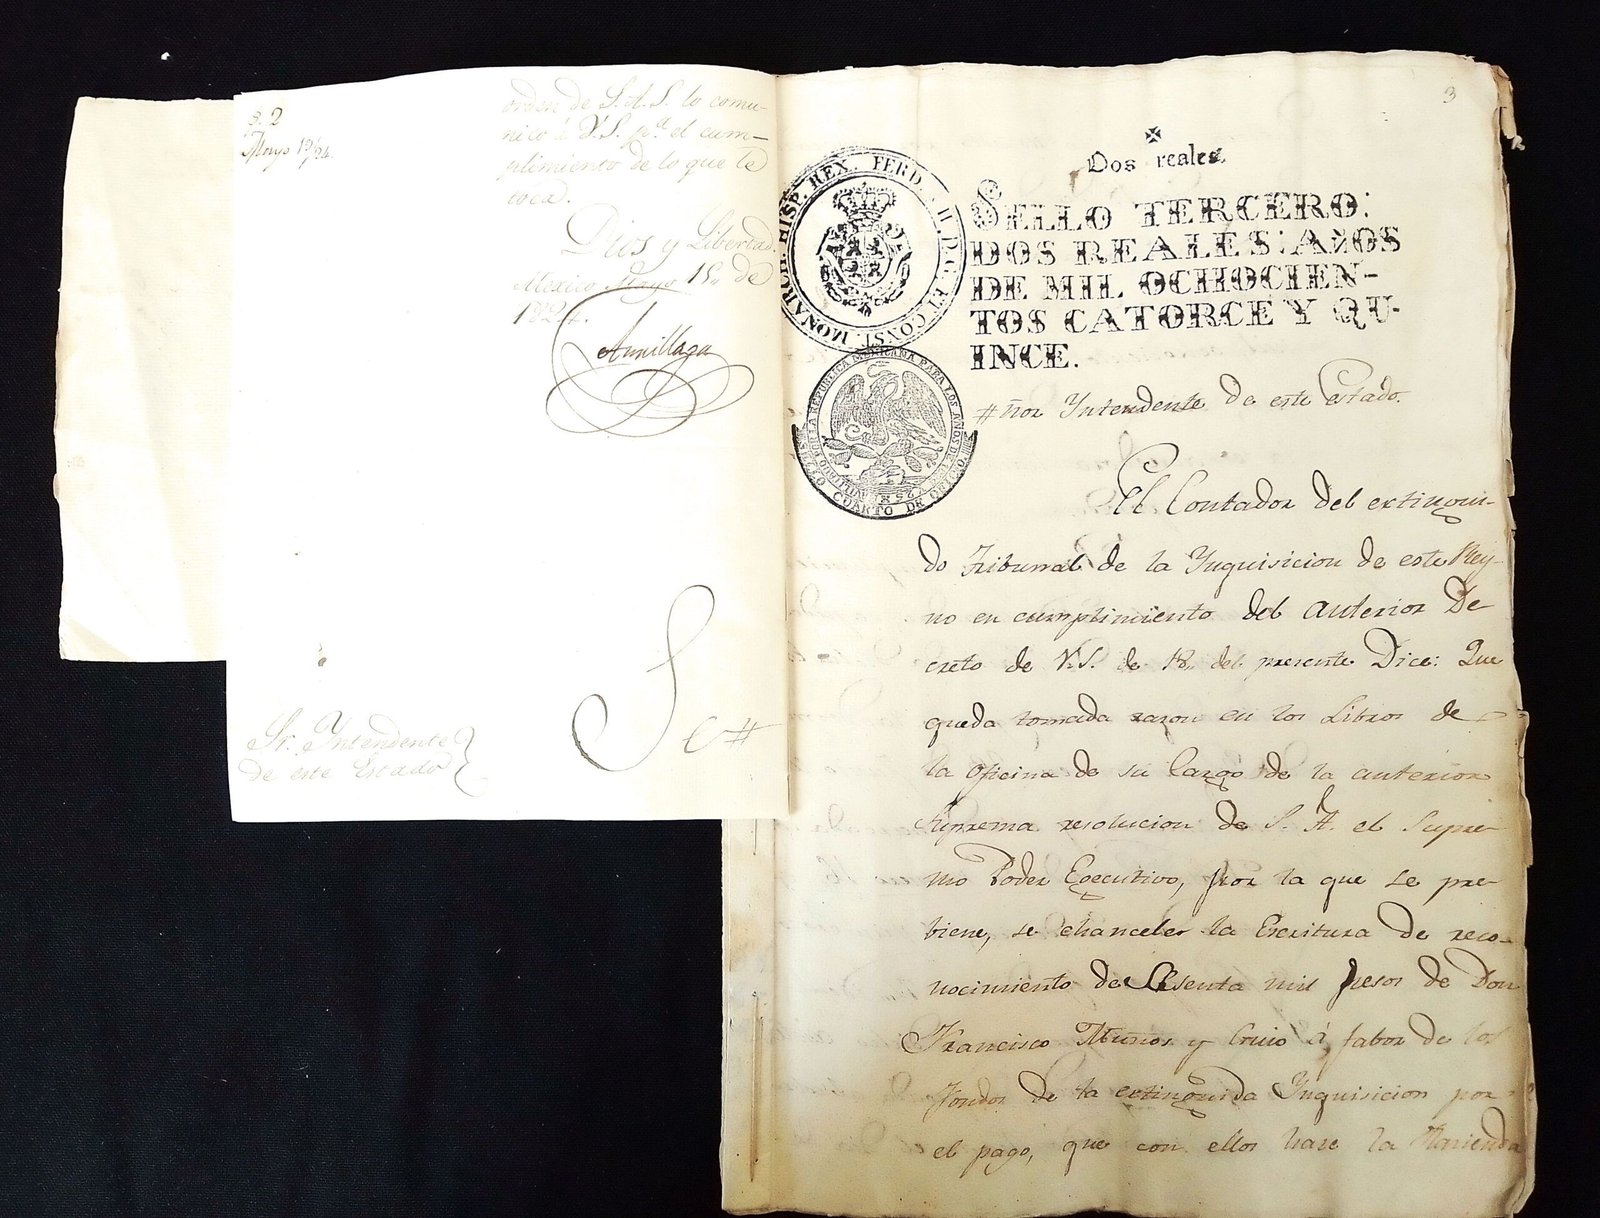 3. 2
Mayo 19/24.
orden de S.A.S. lo comu-
nico á V.S. pa. el cum-
plimiento de lo que le
toca.
Dios y Libertad.
Mexico Mayo 15,, de
1824.
Arrillaga
Sr. Yntendente
de este Estado
3
Dos reales.
SELLO TERCERO:
DOS REALES: AÑOS
DE MIL OCHOCIEN-
TOS CATORCE Y QU-
INCE.
FERD. VII. D. G. ET CONST. MONARCH. HISP. REX.
DE LA REPUBLICA MEXICANA PARA LOS AÑOS DE
SELLO CUARTO DE
ñor Yntendente de este Estado.
El Contador del extingui-
do Tribunal de la Ynquisicion de este Rey-
no en cumplimiento del anterior De
creto de V.S. de 18,, del presente Dice: Que
queda tomada razon en los Libros de
la oficina de su cargo de la anterior
Suprema resolucion de S. A. el Supre-
mo Poder Egecutivo, por la que se pre-
biene, se chancele la Escritura de reco-
nocimiento de Sesenta mil pesos de Don
Francisco Muños y á fabor de los
fondos de la extinguida Ynquisicion por
el pago, que con ellos hace la Hacienda